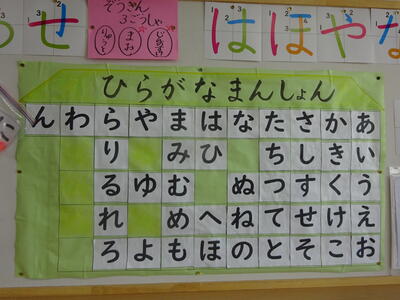 せ
ぞうきん
3ごうしゃ
はほやな
ひらがなまんしょん
あいうえお
かきくけこ
さしすせそ
たちつてと
なぬねの
はひへほ
まみむめも
やゆよ
らりるれろ
わ
ん